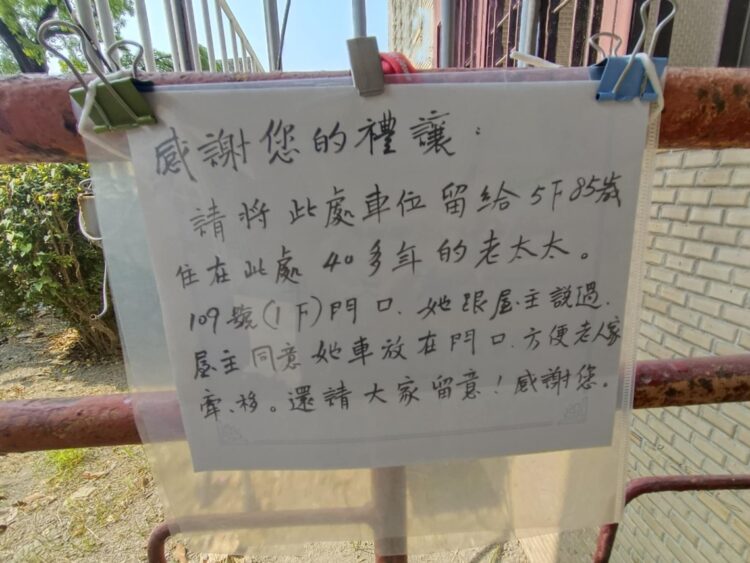 感謝您的禮讓：
請將此處車位留給5F85歲
住在此處40多年的老太太。
109號(1F)門口.她跟屋主說過.
屋主同意她車放在門口.方便老人家
牽、移。還請大家留意！感謝您。